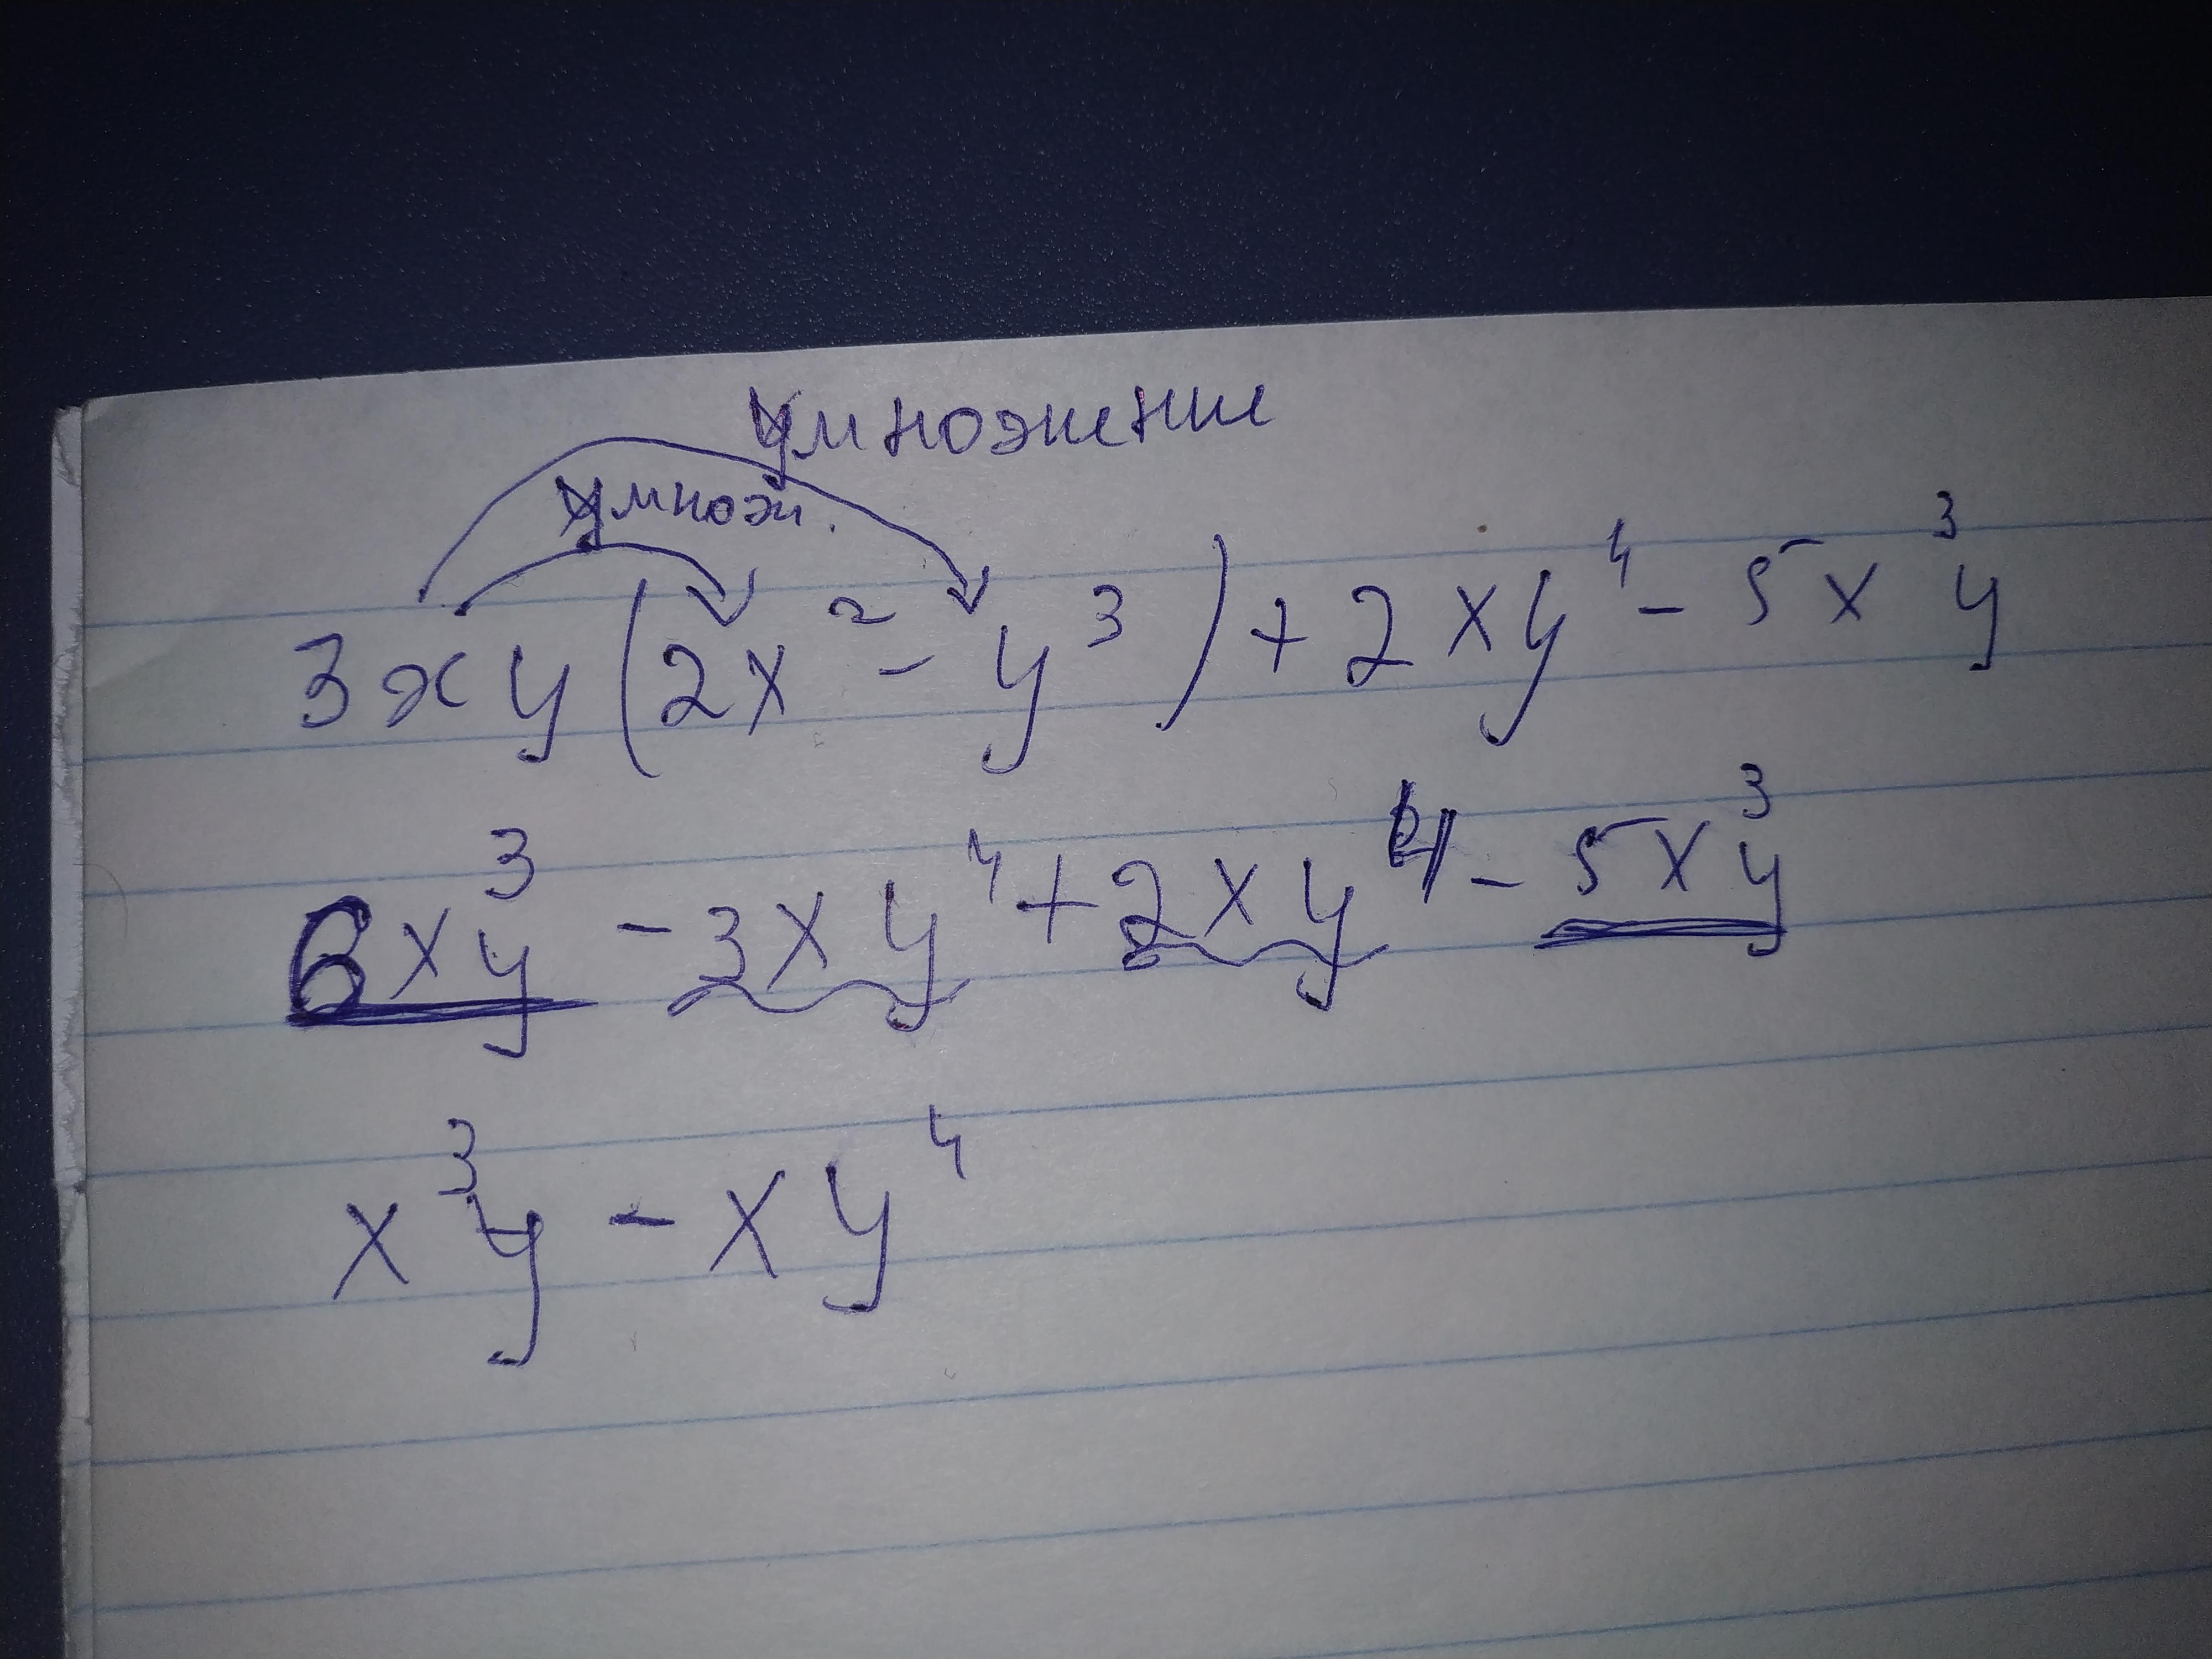 умножение
умнож.
3xy(2x²-y³)+2xy⁴-5x³y
6x³y-3xy⁴+2xy⁴-5x³y
x³y-xy⁴